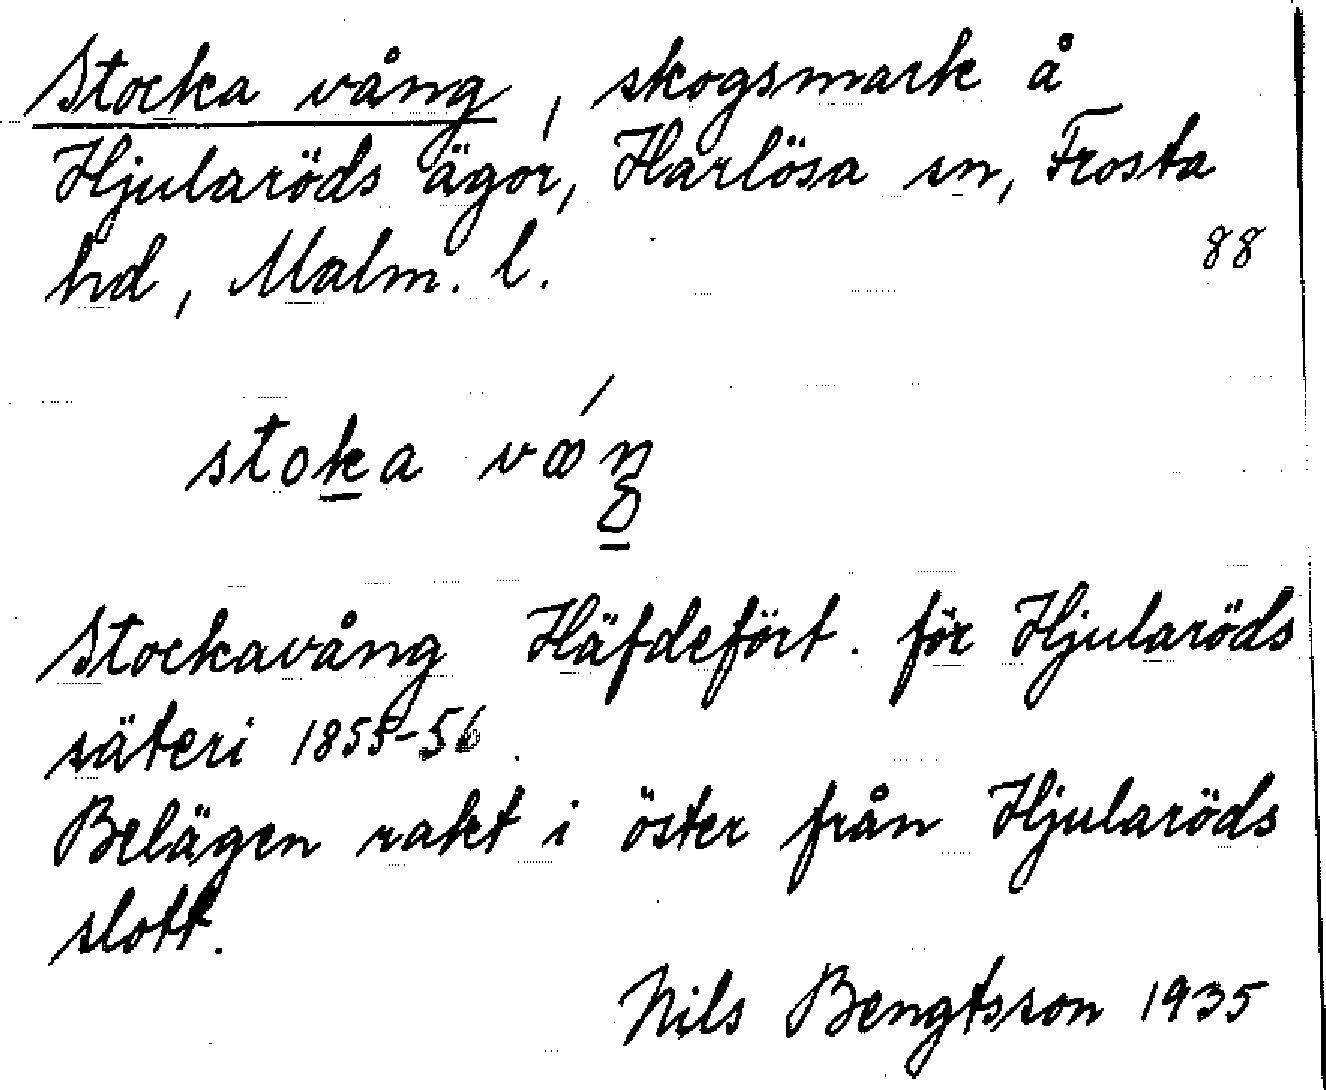 Stocka vång, skogsmark å
Hjularöds ägor, Harlösa sn, Frosta
hd, Malm. l.
88
stoka
Stockavång Häfdefört. för Hjularöds
säteri 1855-56.
Belägen rakt i öster från Hjularöds
slott.
Nils Bengtsson 1935